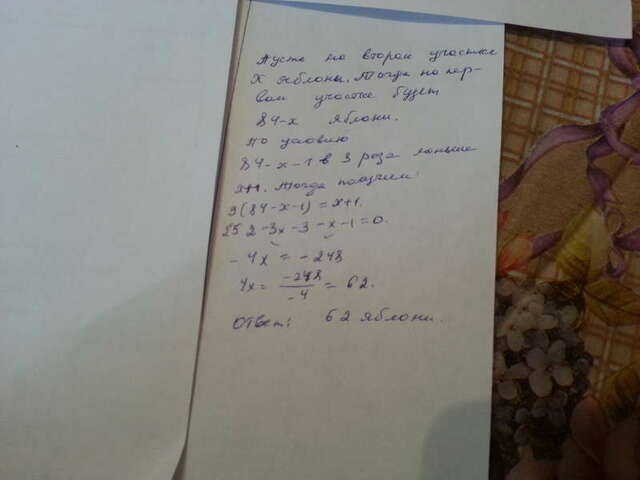 Пусть на втором участке
X яблонь. Тогда на пер-
вом участке будет
84-x яблони.
По условию
84-x-1 в 3 раза меньше
x+1. Тогда получим:
3(84-x-1)=x+1.
252-3x-3-x-1=0.
-4x = -248
4x = -248/-4 = 62.
Ответ: 62 яблони.